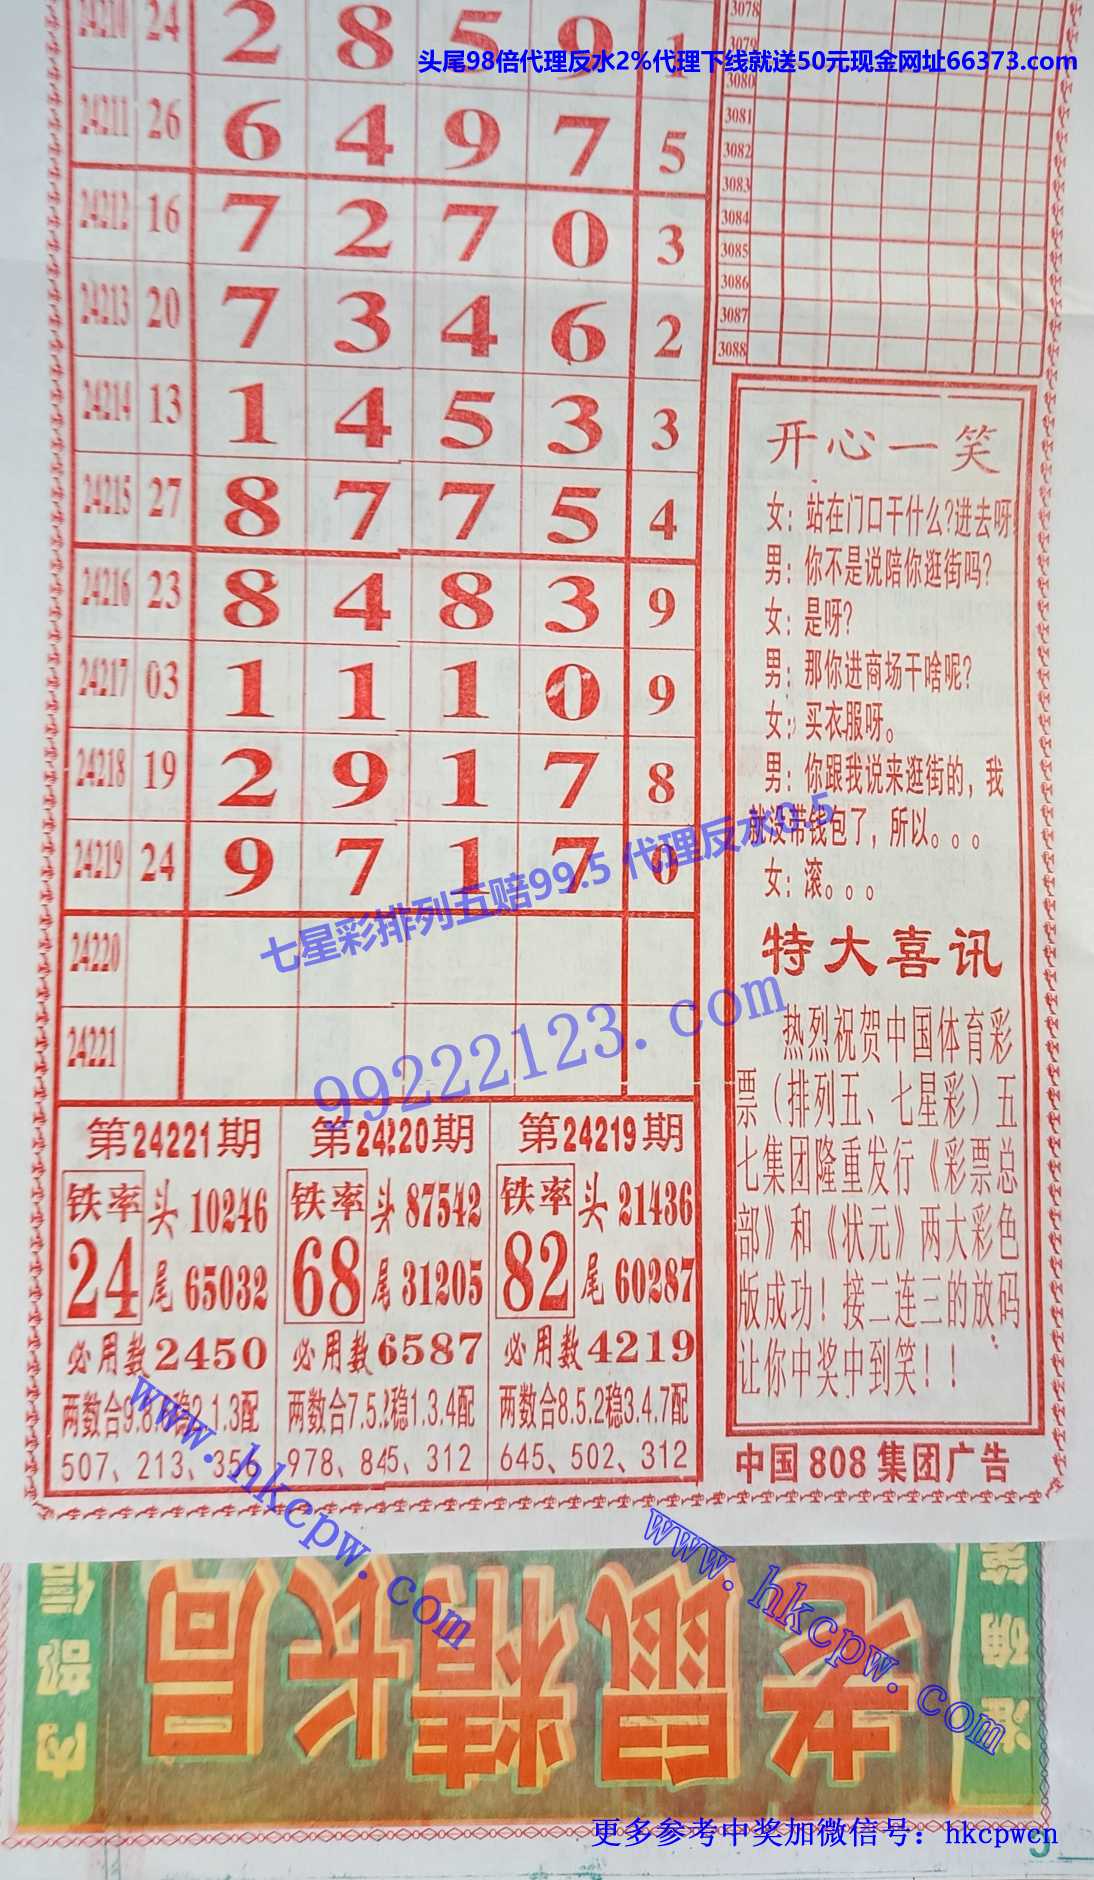 24210 24 2 8 5 9 1
头尾98倍代理反水2%代理下线就送50元现金网址66373.com
24211 26 6 4 9 7 5
24212 16 7 2 7 0 3
24213 20 7 3 4 6 2
24214 13 1 4 5 3 3
24215 27 8 7 7 5 4
24216 23 8 4 8 3 9
24217 03 1 1 1 0 9
24218 19 2 9 1 7 8
24219 24 9 7 1 7 0
24220
24221
七星彩排列五赔99.5 代理反水0.5
99222123.com
第24221期
铁率
24
头 10246
尾 65032
必用数2450
两数合9.8.稳2.1.3配
507、213、356
第24220期
铁率
68
头 87542
尾 31205
必用数6587
两数合7.5.2稳1.3.4配
978、845、312
第24219期
铁率
82
头 21436
尾 60287
必用数4219
两数合8.5.2稳3.4.7配
645、502、312
3078
3079
3080
3081
3082
3083
3084
3085
3086
3087
3088
开心一笑
女：站在门口干什么?进去呀!
男：你不是说陪你逛街吗?
女：是呀?
男：那你进商场干啥呢?
女：买衣服呀。
男：你跟我说来逛街的，我
就没带钱包了，所以。。。
女：滚。。。
特大喜讯
热烈祝贺中国体育彩
票（排列五、七星彩）五
七集团隆重发行《彩票总
部》和《状元》两大彩色
版成功！接二连三的放码
让你中奖中到笑！！
中国 808 集团广告
www.hkcpw.com
www.hkcpw.com
局长精
老鼠
内部
准确
更多参考中奖加微信号：hkcpwcn